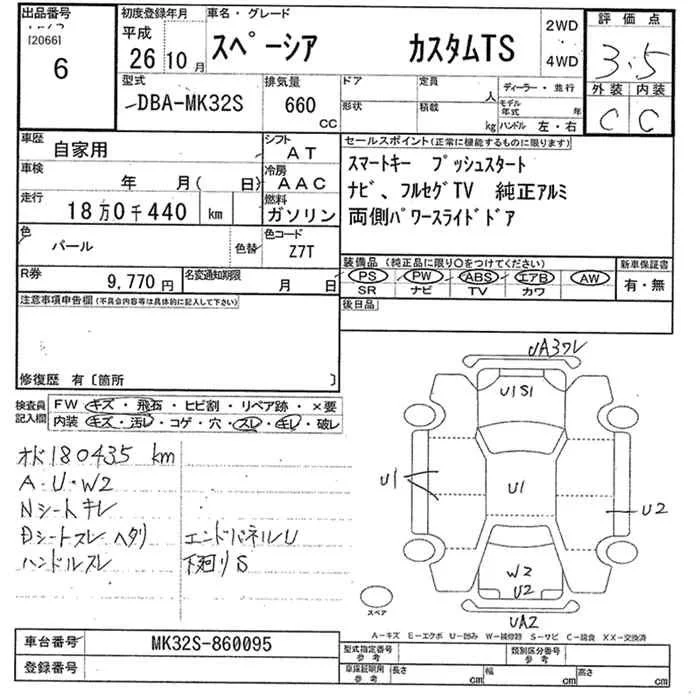 出品番号
[2066]
6
初度登録年月
平成
26 10 月
車名・グレード
スペーシア カスタムTS
2WD
4WD
評価点
3.5
外装 内装
C C
型式
DBA-MK32S
排気量
660
CC
ドア
形状
定員
人
積載
kg
ディーラー・並行
モデル年式 年
ハンドル 左・右
車歴
自家用
シフト
AT
車検
年 月( 日)
冷房
AAC
走行
18万0千440 km
燃料
ガソリン
色
パール
色替
色コード
Z7T
R券
9,770円
名変通知期限
月 日
セールスポイント(正常に機能するものに限ります)
スマートキー プッシュスタート
ナビ、フルセグTV 純正アルミ
両側パワースライドドア
装備品 (純正品に限り○をつけてください)
PS PW ABS エアB AW
SR ナビ TV カワ
新車保証書
有・無
後日品
注意事項申告欄(不具合内容等は具体的に記入して下さい)
修復歴 有〔箇所 〕
検査員記入欄
FW キズ・飛石・ヒビ割・リペア跡・×要
内装 キズ・汚レ・コゲ・穴・スレ・キレ・破レ
オド180435 km
A・U・W2
Nシートキレ
Dシートスレ ヘタリ
ハンドルスレ
エンドパネルU
下廻りS
UA3ワレ
U1S1
U1
U1
U2
W2
U2
UA2
スペア
A-キズ E-エクボ U-凹み W-補修跡 S-サビ C-腐食 XX-交換済
車台番号
MK32S-860095
登録番号
型式指定番号
参考
類別区分番号
参考
車庫証明用
参考
長さ cm
幅 cm
高さ cm